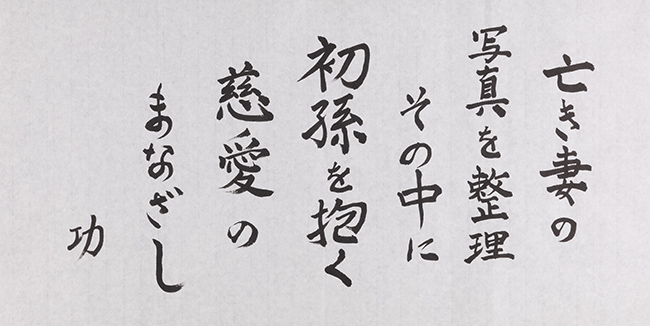 亡き妻の
写真を整理
その中に
初孫を抱く
慈愛の
まなざし
功